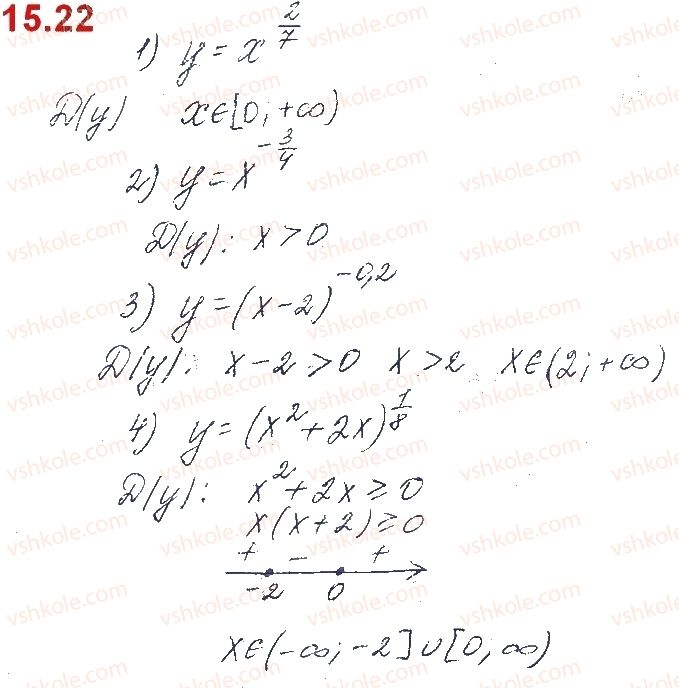 15.22
1) y = x^(2/7)
D(y) x∈[0; +∞)
2) y = x^(-3/4)
D(y): x > 0
3) y = (x-2)^(-0,2)
D(y): x-2 > 0 x > 2 x∈(2; +∞)
4) y = (x² + 2x)^(1/8)
D(y): x² + 2x ≥ 0
x(x+2) ≥ 0
+ - +
-2 0
x∈(-∞; -2] ∪ [0; ∞)
vshkole.com